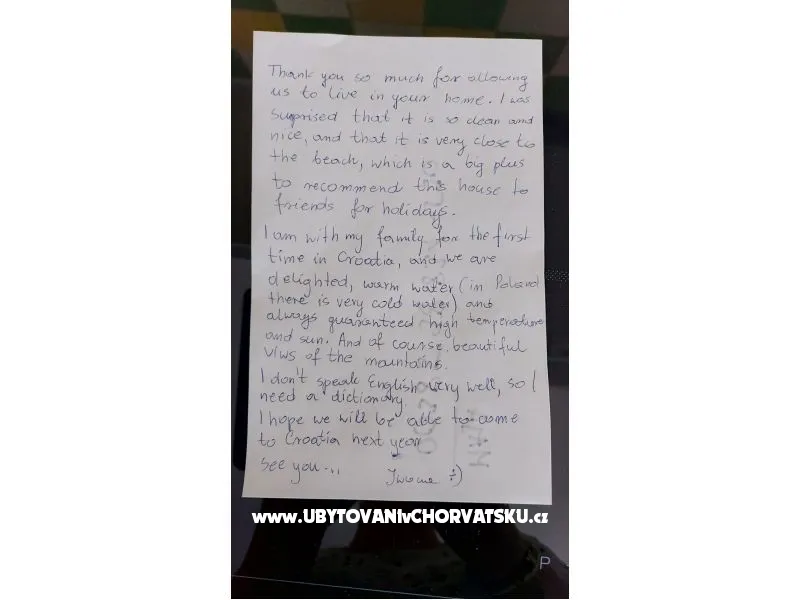 Thank you so much for allowing
us to live in your home. I was
surprised that it is so clean and
nice, and that it is very close to
the beach, which is a big plus
to recommend this house to
friends for holidays.
I am with my family for the first
time in Croatia, and we are
delighted, warm water (in Poland
there is very cold water) and
always guaranteed high temperature
and sun. And of course, beautiful
viws of the mountains.
I don't speak English very well, so I
need a dictionary.
I hope we will be able to come
to Croatia next year
see you...
:)
www.UBYTOVANIvCHORVATSKU.cz
P